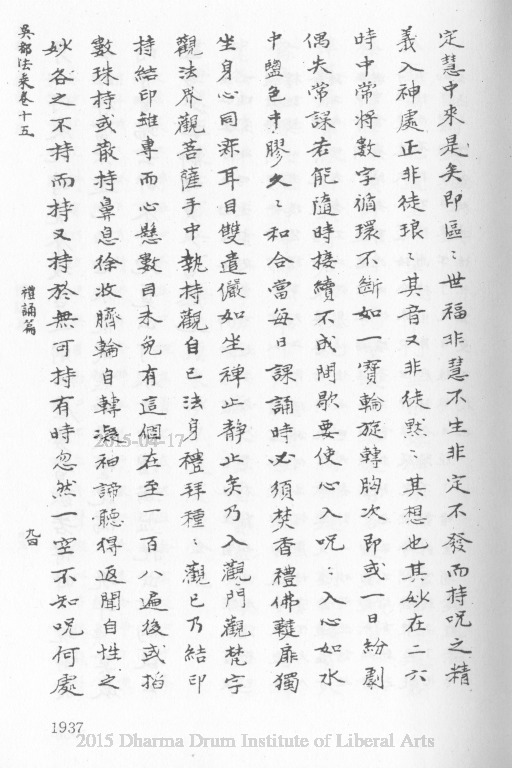 定慧中來是矣即區〻世福非慧不生非定不發而持呪之精
義入神處正非徒琅〻其音又非徒默〻其想也其妙在二六
時中常將數字循環不斷如一寶輪旋轉胸次即或一日紛劇
偶失常課若能隨時接續不成間歇要使心入呪〻入心如水
中鹽色中膠久〻和合當每日課誦時必須焚香禮佛闥扉獨
坐身心同寂耳目雙遣儼如坐禪止靜止矣乃入觀門觀梵字
觀法界觀菩薩手中執持觀自己法身禮拜種〻觀已乃結印
持結印雖專而心懸數目未免有這個在至一百八遍後或掐
數珠持或散持鼻息徐收臍輪自轉凝神諦聽得返聞自性之
妙各之不持而持又持於無可持有時忽然一空不知呪何處
吳都法乘卷十五
禮誦篇
九四
1937
2015-04-17
2015 Dharma Drum Institute of Liberal Arts